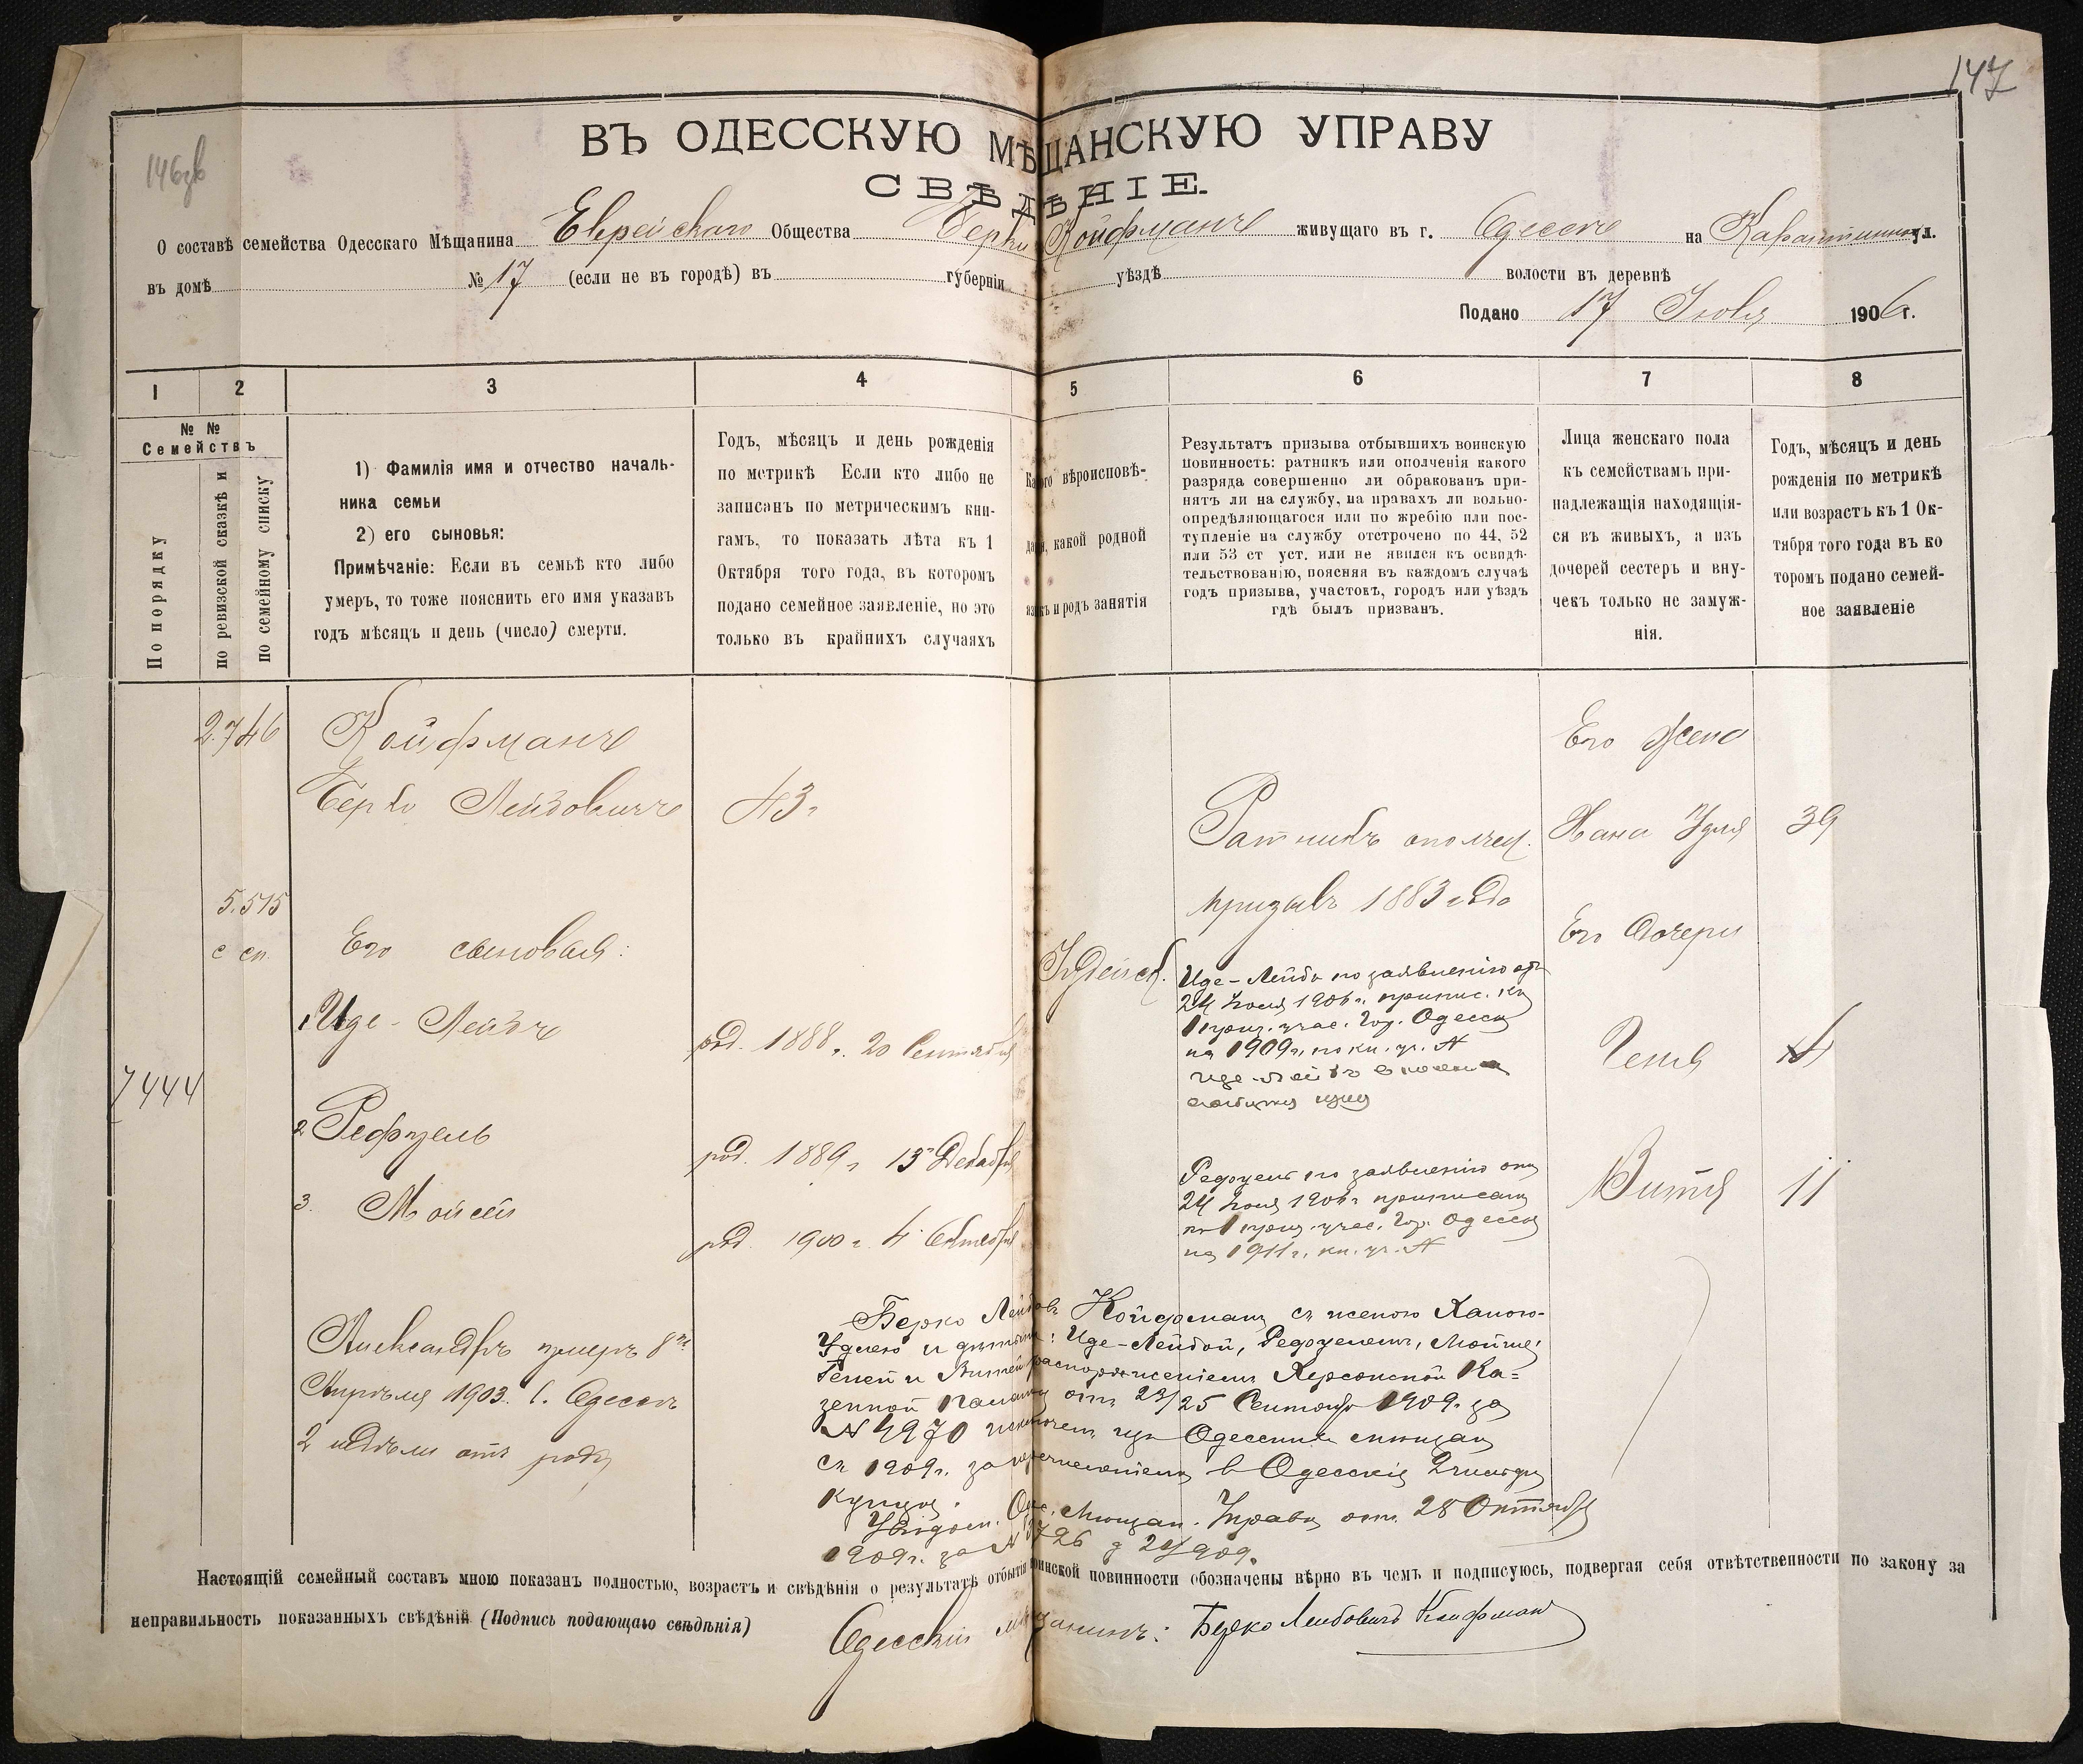 147
146зв
ВЪ ОДЕССКУЮ МѢЩАНСКУЮ УПРАВУ
СВѢДѢНІЕ.
О составѣ семейства Одесскаго Мѣщанина Еврейскаго Общества Берки Койфманъ живущаго въ г. Одессѣ на Карантинной ул.
въ домѣ № 17 (если не въ городѣ) въ губерніи уѣздѣ волости въ деревнѣ
Подано 17 Іюля 1906 г.
1 2 3 4 5 6 7 8
№ №
Семействъ
По порядку
по ревизской сказкѣ и
по семейному списку
1) Фамилія имя и отчество началь-
ника семьи
2) его сыновья:
Примѣчаніе: Если въ семьѣ кто либо
умеръ, то тоже пояснить его имя указавъ
годъ мѣсяцъ и день (число) смерти.
Годъ, мѣсяцъ и день рожденія
по метрикѣ Если кто либо не
записанъ по метрическимъ кни-
гамъ, то показать лѣта къ 1
Октября того года, въ которомъ
подано семейное заявленіе, но это
только въ крайнихъ случаяхъ
Какого вѣроисповѣ-
данія, какой родной
языкъ и родъ занятія
Результатъ призыва отбывшихъ воинскую
повинность: ратникъ или ополченія какого
разряда совершенно ли обракованъ при-
нятъ ли на службу, на правахъ ли вольно-
опредѣляющагося или по жребію или пос-
тупленіе на службу отсрочено по 44, 52
или 53 ст уст. или не явился къ освидѣ-
тельствованію, поясняя въ каждомъ случаѣ
годъ призыва, участокъ, городъ или уѣздъ
гдѣ былъ призванъ.
Лица женскаго пола
къ семействамъ при-
надлежащія находящія-
ся въ живыхъ, а изъ
дочерей сестеръ и вну-
чекъ только не замуж-
нія.
Годъ, мѣсяцъ и день
рожденія по метрикѣ
или возрастъ къ 1 Ок-
тября того года въ ко
торомъ подано семей-
ное заявленіе
2.746
Койфманъ
Берко Лейбовичъ
43 г
Ратникъ ополчен.
призывъ 1883 года
Его Жена
Хана Удля 39
5.515
с сп.
Его сыновья:
Іудейск.
Его Дочери
7444
1 Иде-Лейбъ
род. 1888 г. 20 Сентября
Иде-Лейбъ по заявленію отъ
24 Іюля 1906 г. припис. къ
1 приз. учас. гор. Одессы
на 1909 г. по кн. уг. А
Геня
2 Рефуель
род. 1889 г 15 Декабря
Рефуель по заявленію отъ
24 Іюля 1906 г приписанъ
къ 1 приз. учас. гор. Одессы
на 1911 г. кн. уг. А
Витя 11
3. Мойсей
род. 1900 г. 4 Октября
Александръ умеръ 8го
Апрѣля 1903. в. Одессѣ
2 недѣли отъ роду
Берко Лейбовъ Койфманъ съ женою Ханою-
Удлею и дѣтьми: Иде-Лейбой, Рефуелемъ, Мойше,
Геней и Витей распоряженіемъ Херсонской Ка=
зенной Палаты отъ 23/25 Сентября 1909 г. за
№ 4970 исключенъ изъ Одесскихъ мѣщанъ
съ 1909 г. за перечисленіемъ в Одесскіе 2 гильдіи
купцы.
Увѣдом. Оде. Мѣщан. Управы отъ 28 Октября
Настоящій семейный составъ мною показанъ полностью, возрастъ и свѣдѣнія о результатѣ отбытія воинской повинности обозначены вѣрно въ чемъ и подписуюсь, подвергая себя отвѣтственности по закону за
неправильность показанныхъ свѣдѣній (Подпись подающаго свѣдѣнія)
Одесскій мѣщанинъ: Берко Лейбовичъ Койфман